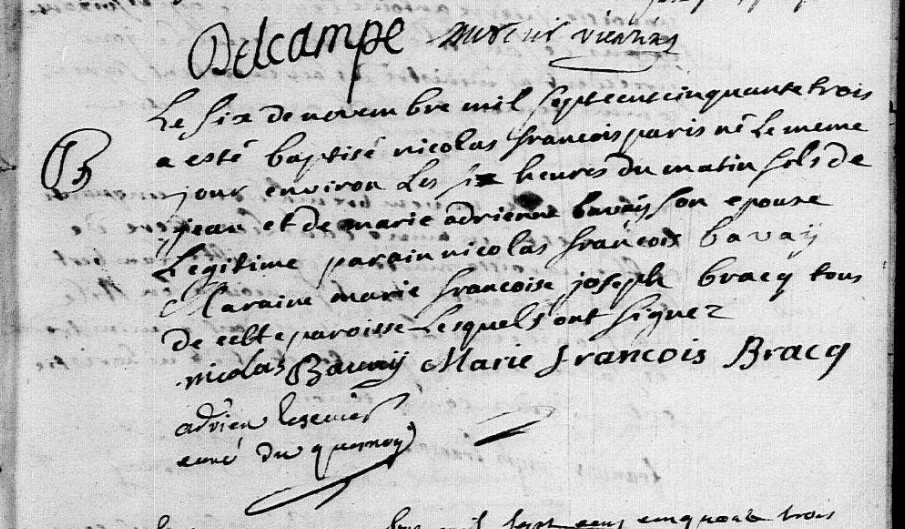 Delcampe
B
Le six de novembre mil septcentcinquante trois
a esté baptisé nicolas francois paris né Le meme
jour environ Les six heures du matin fils de
jean et de marie adrienne bavaÿ son epouse
Legitime parain nicolas françois bavaÿ
Maraine marie francoise joseph bracq tous
De cette paroisse Lesquels ont signez
nicolas Bauvaij Marie francois Bracq
adrien
curé du quesnoy
mil sept cens cinquante trois